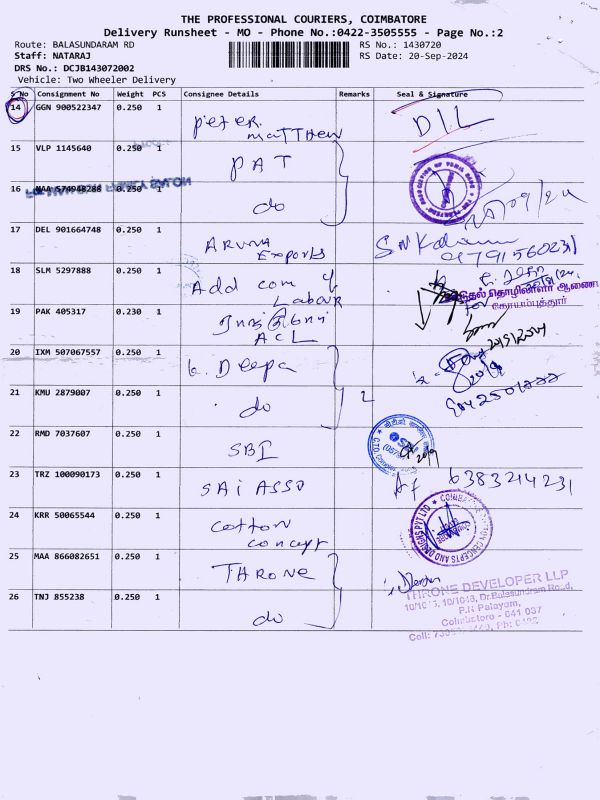 THE PROFESSIONAL COURIERS, COIMBATORE
Delivery Runsheet - MO - Phone No.:0422-3505555 - Page No.:2
Route: BALASUNDARAM RD
RS No.: 1430720
Staff: NATARAJ
RS Date: 20-Sep-2024
DRS No.: DCJB143072002
Vehicle: Two Wheeler Delivery
S No Consignment No Weight PCS Consignee Details Remarks Seal & Signature
14 GGN 900522347 0.250 1 Peter Matthew DIL
15 VLP 1145640 0.250 1 PAT
16 MAA 574948288 0.250 1 do
17 DEL 901664748 0.250 1 ARUNA Exports
18 SLM 5297888 0.250 1 Add com of Labour
கோயம்புத்தூர்
19 PAK 405317 0.230 1 ACL
20 IXM 507067557 0.250 1 Deepa
21 KMU 2879007 0.250 1 do 2
22 RMD 7037607 0.250 1 SBI
23 TRZ 100090173 0.250 1 SAI ASSO 6383214231
24 KRR 50065544 0.250 1 cotton concept
25 MAA 866082651 0.250 1 THRONE
THRONE DEVELOPER LLP
10/1048, Dr.Balasundram Road,
P.N Palayam,
Coimbatore - 641 037
26 TNJ 855238 0.250 1 do